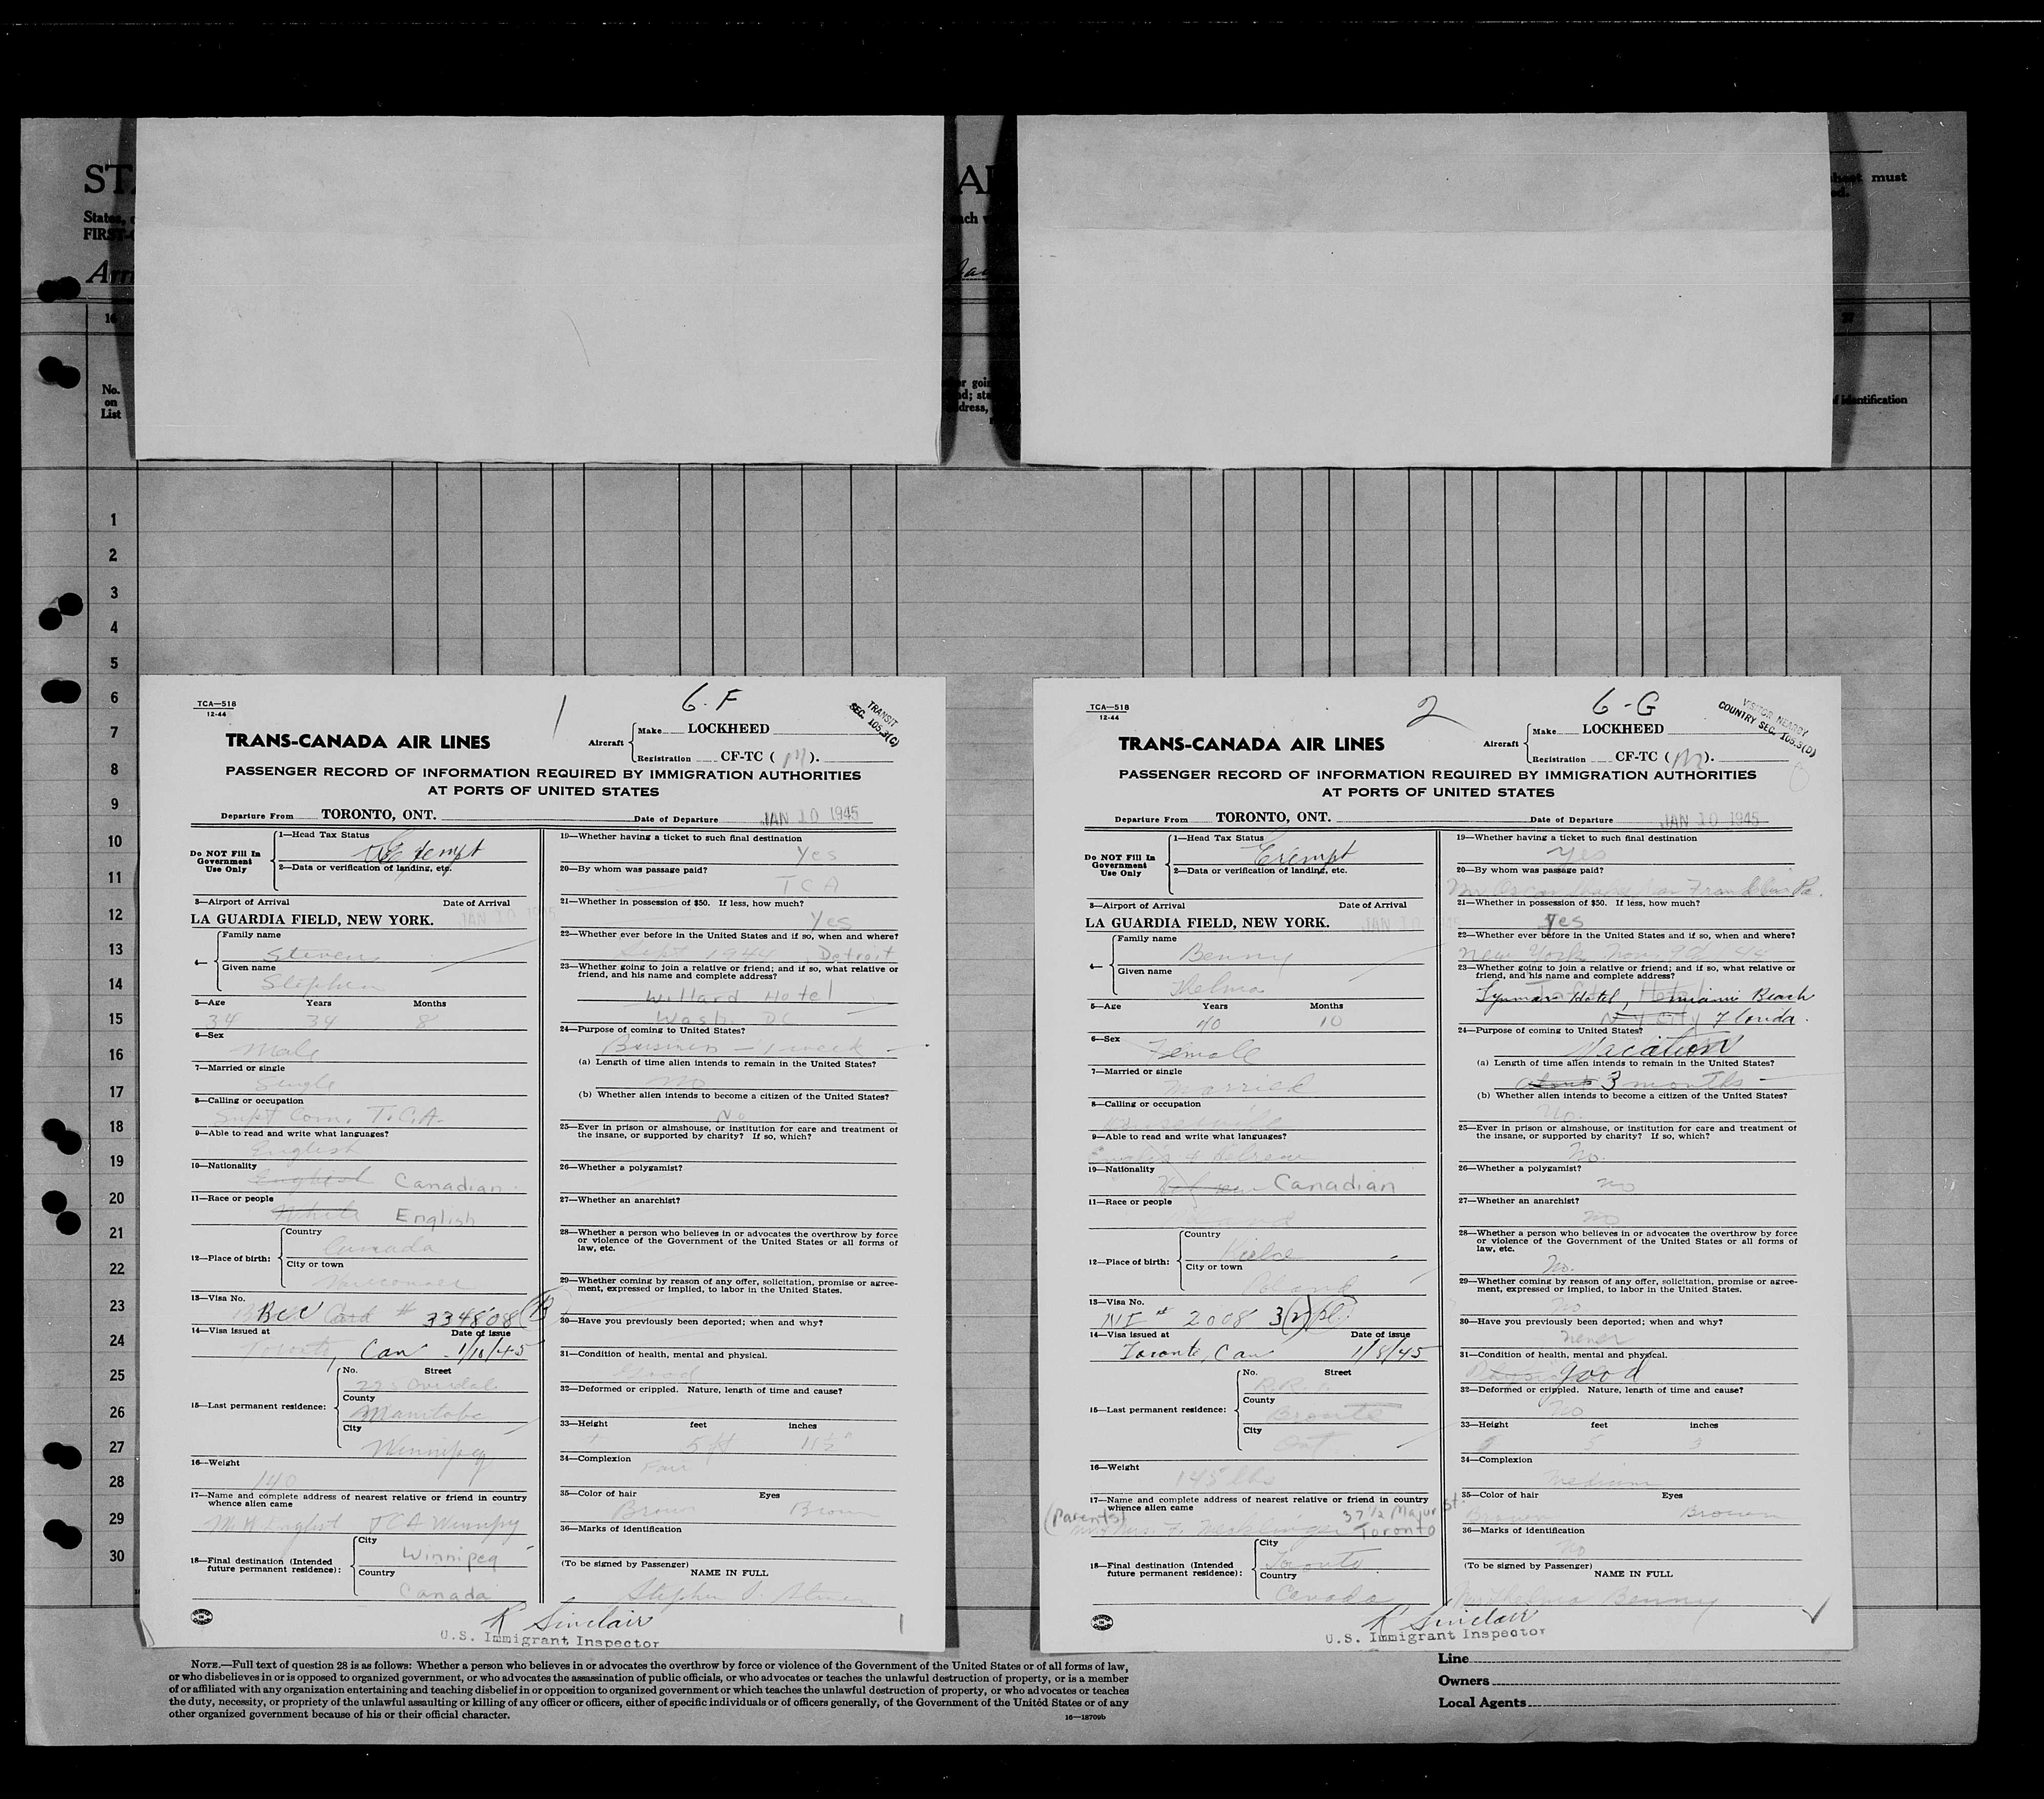 ST
States,
FIRST-
No.
on
List
must
of identification
1
2
3
4
5
6
7
8
9
10
11
12
13
14
15
16
17
18
19
20
21
22
23
24
25
26
27
28
29
30
TCA—518
12-44
1
6-F
TRANSIT
SEC. 105.3(C)
TRANS-CANADA AIR LINES
Aircraft
Make LOCKHEED
Registration CF-TC (M).
PASSENGER RECORD OF INFORMATION REQUIRED BY IMMIGRATION AUTHORITIES
AT PORTS OF UNITED STATES
Departure From TORONTO, ONT. Date of Departure JAN 10 1945
Do NOT Fill In
Government
Use Only
1—Head Tax Status
Exempt
2—Data or verification of landing, etc.
3—Airport of Arrival Date of Arrival
LA GUARDIA FIELD, NEW YORK. JAN 10 1945
4—
Family name
Stevens
Given name
Stephen
5—Age Years Months
34 34 8
6—Sex
Male
7—Married or single
Single
8—Calling or occupation
Supt Com. T.C.A.
9—Able to read and write what languages?
English
10—Nationality
English Canadian
11—Race or people
White English
12—Place of birth:
Country
Canada
City or town
Vancouver
13—Visa No.
BCC Card # 334808 (B
14—Visa issued at Date of issue
Toronto, Can 1/10/45
15—Last permanent residence:
No. Street
County
Manitoba
City
Winnipeg
16—Weight
140
17—Name and complete address of nearest relative or friend in country
whence alien came
W H English TCA Winnipeg
18—Final destination (Intended
future permanent residence):
City
Winnipeg
Country
Canada
19—Whether having a ticket to such final destination
Yes
20—By whom was passage paid?
TCA
21—Whether in possession of $50. If less, how much?
Yes
22—Whether ever before in the United States and if so, when and where?
Sept 1944 Detroit
23—Whether going to join a relative or friend; and if so, what relative or
friend, and his name and complete address?
Willard Hotel
Wash. DC
24—Purpose of coming to United States?
Business - 1 week
(a) Length of time alien intends to remain in the United States?
No
(b) Whether alien intends to become a citizen of the United States?
No
25—Ever in prison or almshouse, or institution for care and treatment of
the insane, or supported by charity? If so, which?
26—Whether a polygamist?
27—Whether an anarchist?
28—Whether a person who believes in or advocates the overthrow by force
or violence of the Government of the United States or all forms of
law, etc.
29—Whether coming by reason of any offer, solicitation, promise or agree-
ment, expressed or implied, to labor in the United States.
30—Have you previously been deported; when and why?
31—Condition of health, mental and physical.
Good
32—Deformed or crippled. Nature, length of time and cause?
33—Height feet inches
5 ft 11½"
34—Complexion
Fair
35—Color of hair Eyes
Brown Brown
36—Marks of identification
(To be signed by Passenger)
NAME IN FULL
Stephen
K Sinclair
U.S. Immigrant Inspector
TCA—518
12-44
2
6-G
VISITOR NEARBY
COUNTRY SEC. 105.3(D)
TRANS-CANADA AIR LINES
Aircraft
Make LOCKHEED
Registration CF-TC (M).
PASSENGER RECORD OF INFORMATION REQUIRED BY IMMIGRATION AUTHORITIES
AT PORTS OF UNITED STATES
Departure From TORONTO, ONT. Date of Departure JAN 10 1945
Do NOT Fill In
Government
Use Only
1—Head Tax Status
Exempt
2—Data or verification of landing, etc.
3—Airport of Arrival Date of Arrival
LA GUARDIA FIELD, NEW YORK. JAN 10 1945
4—
Family name
Benny
Given name
Thelma
5—Age Years Months
40 10
6—Sex
Female
7—Married or single
Married
8—Calling or occupation
Housewife
9—Able to read and write what languages?
English & Hebrew
10—Nationality
Hebrew Canadian
11—Race or people
12—Place of birth:
Country
Kielce
City or town
Poland
13—Visa No.
NI # 2008 3(2)
14—Visa issued at Date of issue
Toronto, Can 1/8/45
15—Last permanent residence:
No. Street
R.R. 1
County
Bronte
City
Ont.
16—Weight
145 lbs
17—Name and complete address of nearest relative or friend in country
whence alien came
(Parents) 37½ Major St.
Mr & Mrs. Toronto
18—Final destination (Intended
future permanent residence):
City
Toronto
Country
Canada
19—Whether having a ticket to such final destination
Yes
20—By whom was passage paid?
Mr Oscar Franklin Pa.
21—Whether in possession of $50. If less, how much?
Yes
22—Whether ever before in the United States and if so, when and where?
New York Nov. 44
23—Whether going to join a relative or friend; and if so, what relative or
friend, and his name and complete address?
Hotel, Miami Beach
N.Y City Florida.
24—Purpose of coming to United States?
Vacation
(a) Length of time alien intends to remain in the United States?
about 3 months
(b) Whether alien intends to become a citizen of the United States?
No.
25—Ever in prison or almshouse, or institution for care and treatment of
the insane, or supported by charity? If so, which?
No.
26—Whether a polygamist?
No
27—Whether an anarchist?
No
28—Whether a person who believes in or advocates the overthrow by force
or violence of the Government of the United States or all forms of
law, etc.
No.
29—Whether coming by reason of any offer, solicitation, promise or agree-
ment, expressed or implied, to labor in the United States.
No
30—Have you previously been deported; when and why?
never
31—Condition of health, mental and physical.
good
32—Deformed or crippled. Nature, length of time and cause?
No
33—Height feet inches
5 3
34—Complexion
Medium
35—Color of hair Eyes
Brown Brown
36—Marks of identification
No
(To be signed by Passenger)
NAME IN FULL
Mrs Thelma Benny
K Sinclair
U.S. Immigrant Inspector
NOTE.—Full text of question 28 is as follows: Whether a person who believes in or advocates the overthrow by force or violence of the Government of the United States or of all forms of law,
or who disbelieves in or is opposed to organized government, or who advocates the assassination of public officials, or who advocates or teaches the unlawful destruction of property, or is a member
of or affiliated with any organization entertaining and teaching disbelief in or opposition to organized government or which teaches the unlawful destruction of property, or who advocates or teaches
the duty, necessity, or propriety of the unlawful assaulting or killing of any officer or officers, either of specific individuals or of officers generally, of the Government of the United States or of any
other organized government because of his or their official character.
16—18709b
Line
Owners
Local Agents